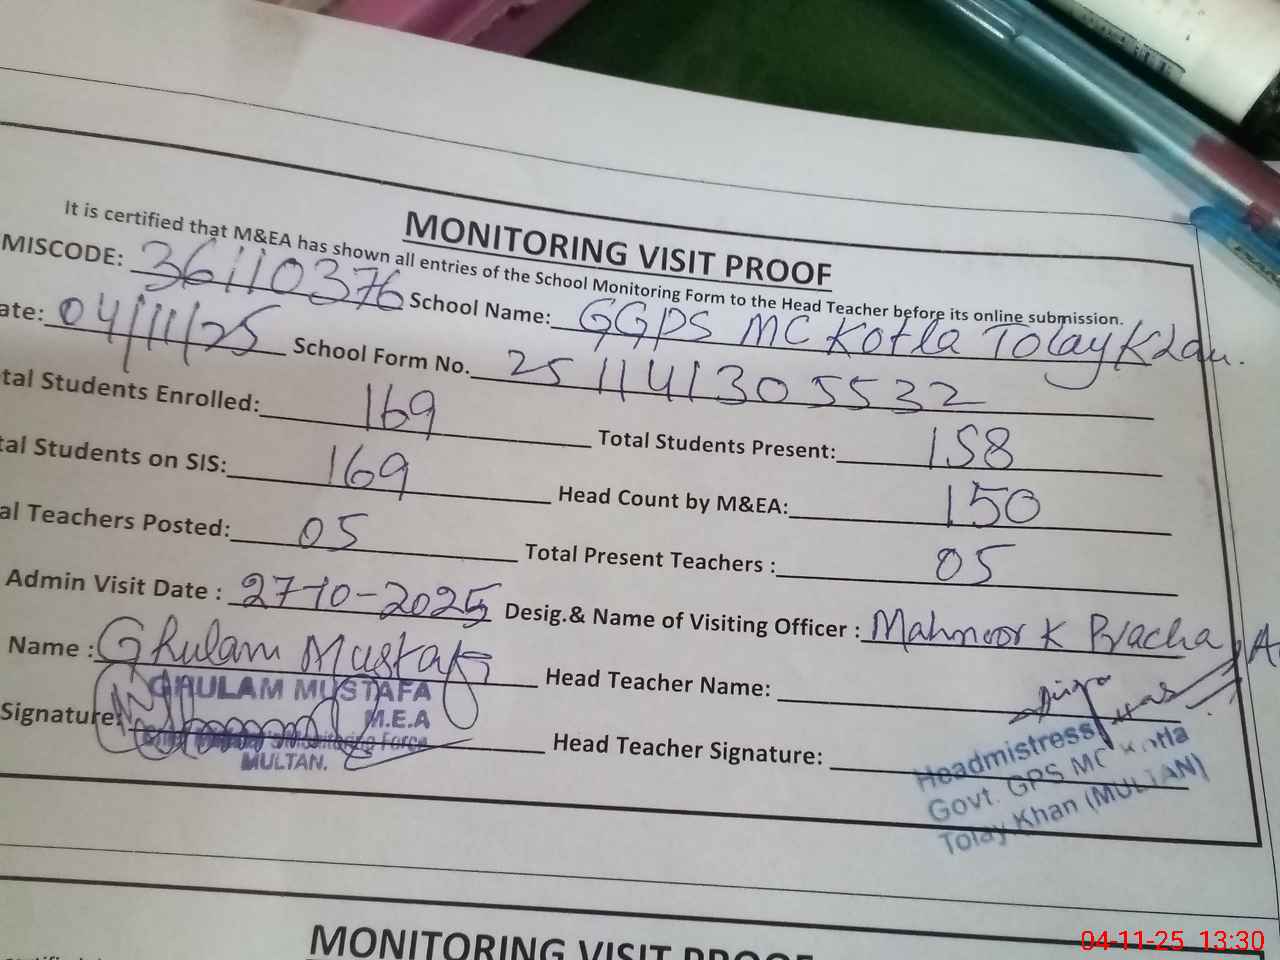 MONITORING VISIT PROOF
It is certified that M&EA has shown all entries of the School Monitoring Form to the Head Teacher before its online submission.
MISCODE: 36110376 School Name: GGPS MC Kotla Tolay Khan.
ate: 04/11/25 School Form No. 25114130 5532
tal Students Enrolled: 169 Total Students Present: 158
tal Students on SIS: 169 Head Count by M&EA: 150
al Teachers Posted: 05 Total Present Teachers : 05
Admin Visit Date : 27-10-2025 Desig.& Name of Visiting Officer : Mahnoor K Pracha A
Name : Ghulam Mustafa Head Teacher Name:
GHULAM MUSTAFA
M.E.A
Monitoring Force
MULTAN.
Signature: Head Teacher Signature:
Headmistress
Govt. GPS MC Kotla
Tolay Khan (MULTAN)
MONITORING VISIT PROOF
04-11-25 13:30